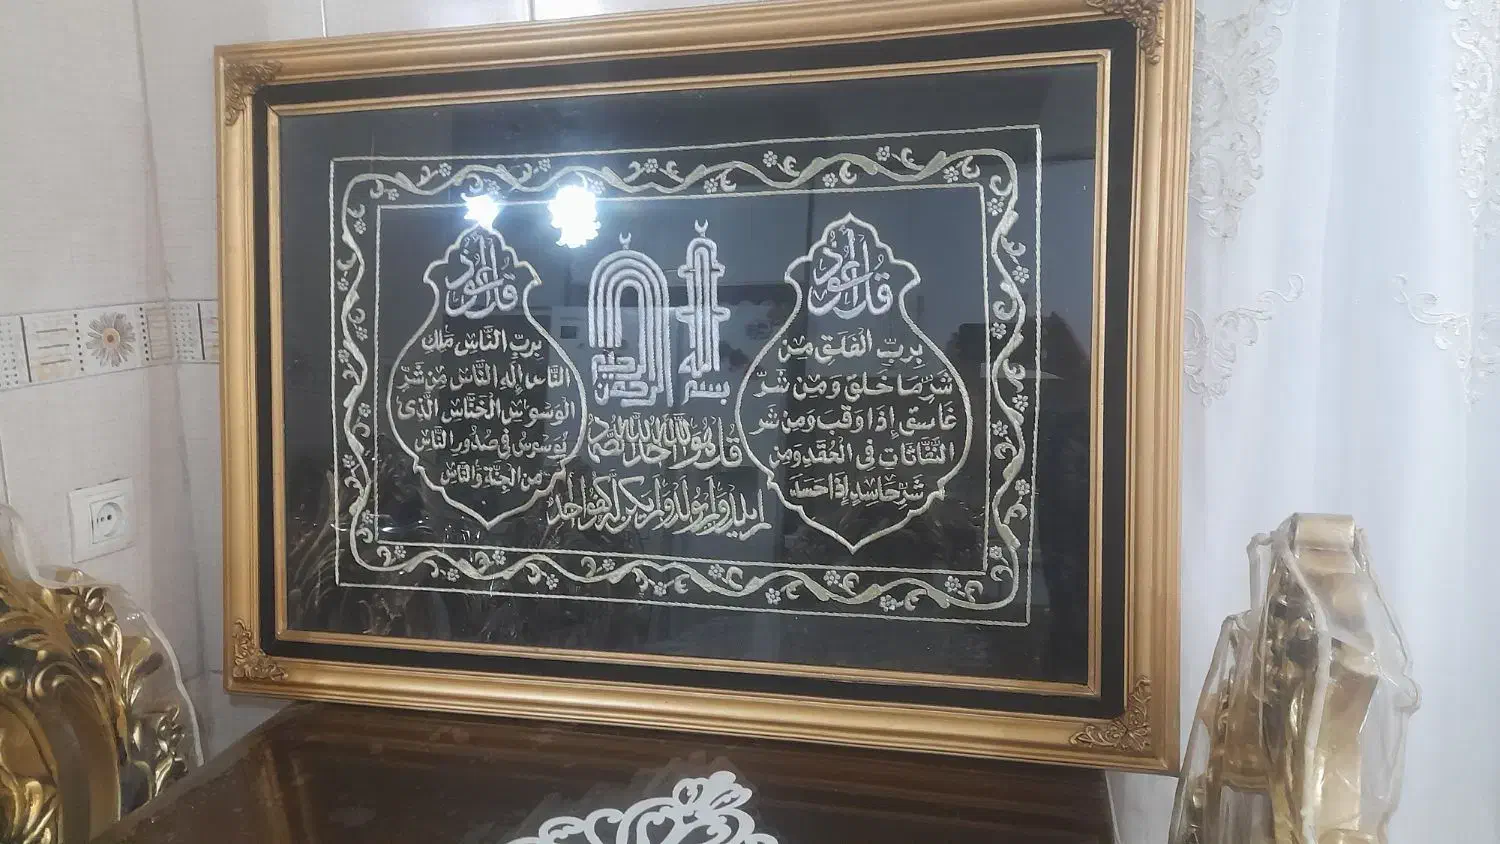 قل أعوذ
برب الفلق من
شر ما خلق و من شر
غاسق إذا وقب و من شر
النفاثات في العقد و من
شر حاسد إذا حسد
بسم الله
الرحمن الرحيم
قل هو الله احد الله الصمد
لم يلد و لم يولد و لم يكن له كفوا احد
قل أعوذ
برب الناس ملك
الناس اله الناس من شر
الوسواس الخناس الذى
يوسوس في صدور الناس
من الجنة و الناس